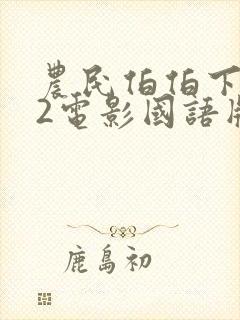 農民伯伯下
2電影國語
鹿島初